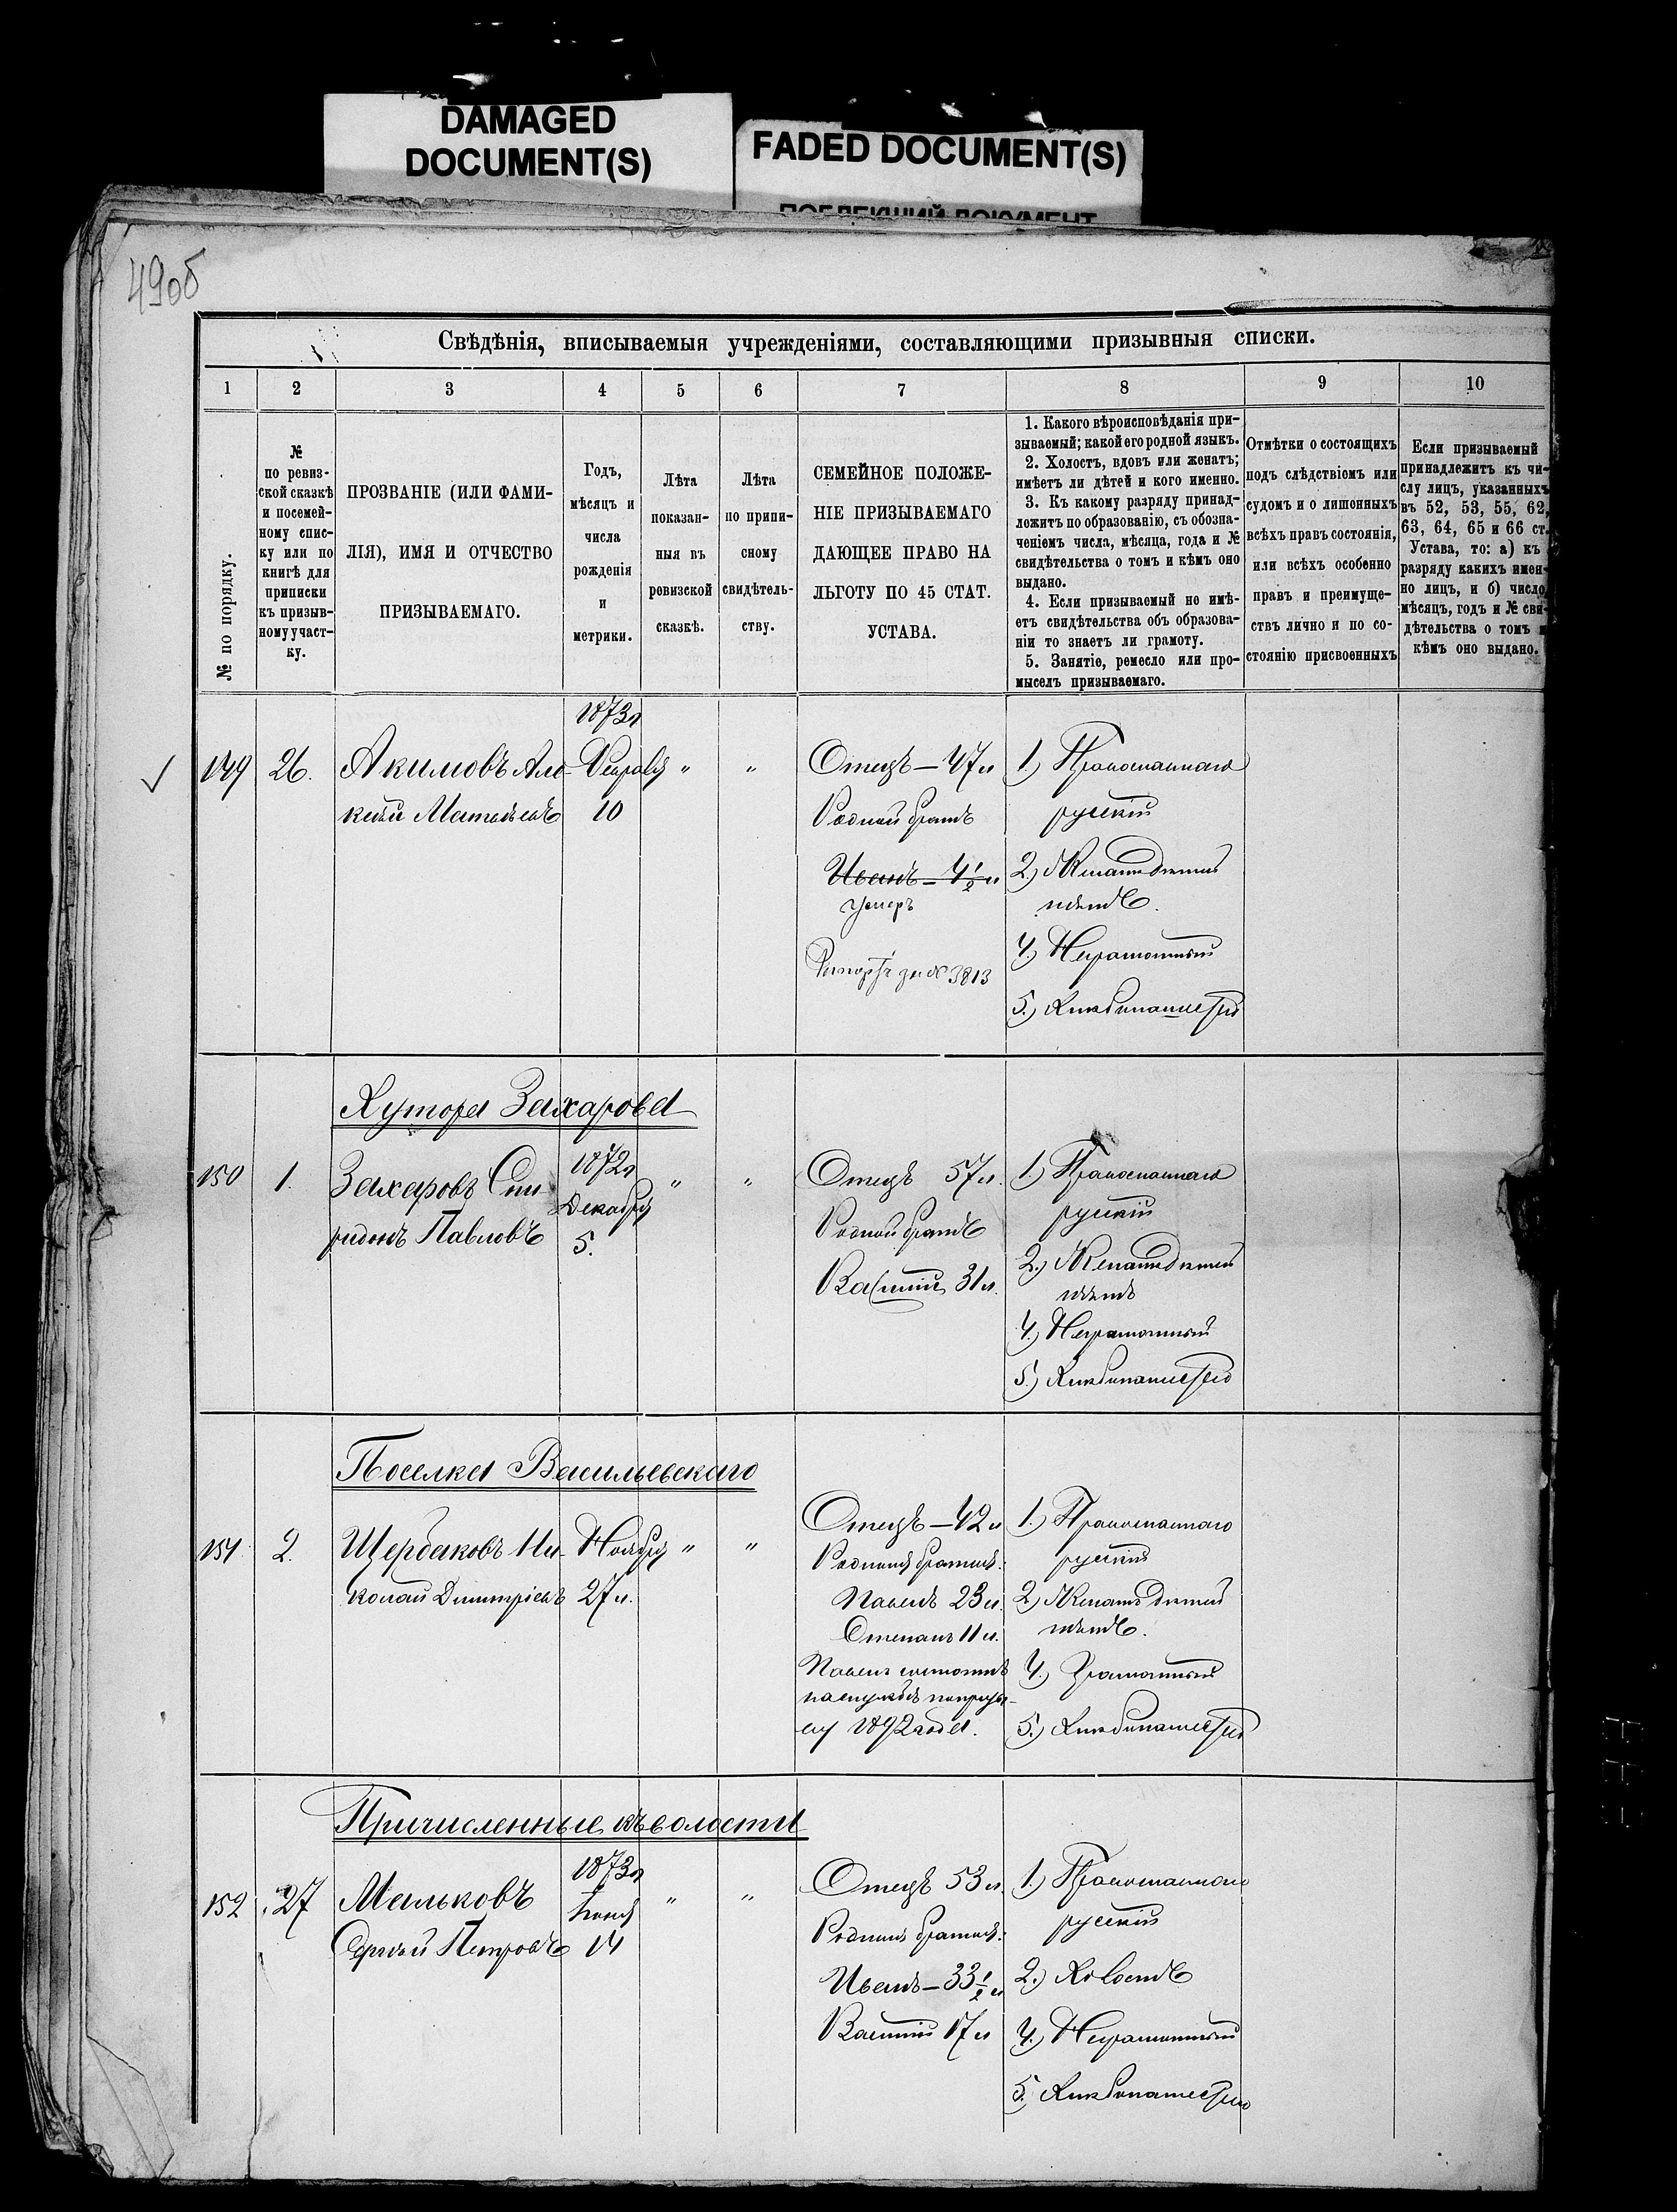 DAMAGED
DOCUMENT(S)
FADED DOCUMENT(S)
ПОБЛЕКШИЙ ДОКУМЕНТ
490б
Свѣдѣнія, вписываемыя учрежденіями, составляющими призывныя списки.
1 2 3 4 5 6 7 8 9 10
№ по порядку.
№
по ревиз-
ской сказкѣ
и посемей-
ному спис-
ку или по
книгѣ для
приписки
къ призыв-
ному участ-
ку.
ПРОЗВАНІЕ (ИЛИ ФАМИ-
ЛІЯ), ИМЯ И ОТЧЕСТВО
ПРИЗЫВАЕМАГО.
Годъ,
мѣсяцъ и
числа
рожденія
и
метрики.
Лѣта
показан-
ныя въ
ревизской
сказкѣ.
Лѣта
по припи-
сному
свидѣтель-
ству.
СЕМЕЙНОЕ ПОЛОЖЕ-
НІЕ ПРИЗЫВАЕМАГО
ДАЮЩЕЕ ПРАВО НА
ЛЬГОТУ ПО 45 СТАТ.
УСТАВА.
1. Какого вѣроисповѣданія при-
зываемый; какой его родной языкъ.
2. Холостъ, вдовъ или женатъ;
имѣетъ ли дѣтей и кого именно.
3. Къ какому разряду принад-
лежитъ по образованію, съ обозна-
ченіемъ числа, мѣсяца, года и №
свидѣтельства о томъ и кѣмъ оно
выдано.
4. Если призываемый не имѣ-
етъ свидѣтельства объ образова-
ніи то знаетъ ли грамоту.
5. Занятіе, ремесло или про-
мыселъ призываемаго.
Отмѣтки о состоящихъ
подъ слѣдствіемъ или
судомъ и о лишонныхъ
всѣхъ правъ состоянія,
или всѣхъ особенно
правъ и преимуще-
ствъ лично и по со-
стоянію присвоенныхъ
Если призываемый
принадлежитъ къ чи-
слу лицъ, указанныхъ
въ 52, 53, 55, 62,
63, 64, 65 и 66 ст.
Устава, то: а) къ
разряду какихъ имен-
но лицъ, и б) число
мѣсяцъ, годъ и № сви-
дѣтельства о томъ и
кѣмъ оно выдано.
149 26. Акимовъ Але-
ксѣй Матвѣевъ
1873г
Февраля
10
" "
Отецъ — 47л
Родной братъ
Иванъ — 4½л
умеръ
Рапортъ за № 3813
1.) Православнаго
русскій
2.) Женатъ дѣтей
нѣтъ.
4.) Неграмотный
5.) Хлѣбопашество
Хутора Захарова
150 1. Захаровъ Спи-
ридонъ Павловъ
1872г
Декабря
5.
" "
Отецъ 57л.
Родной братъ
Василій 31л.
1.) Православнаго
русскій
2.) Женатъ дѣтей
нѣтъ
4.) Неграмотный
5.) Хлѣбопашество
Поселка Васильевскаго
151 2. Щербаковъ Ни-
колай Димитріевъ
Ноября
27л.
" "
Отецъ — 42л
Родныя братья:
Павелъ 23л.
Степанъ 11л.
Павелъ состоитъ
на службѣ по призы-
ву 1892 года.
1.) Православнаго
русскій
2.) Женатъ дѣтей
нѣтъ.
4.) Грамотный
5.) Хлѣбопашество
Причисленные къ волости
152 27 Мальковъ
Сергѣй Петровъ
1873г
Іюня
14
" "
Отецъ 53л.
Родныя братья:
Иванъ — 33½л
Василій 17л
1.) Православнаго
русскій
2.) Холостъ
4.) Неграмотный
5. Хлѣбопашество